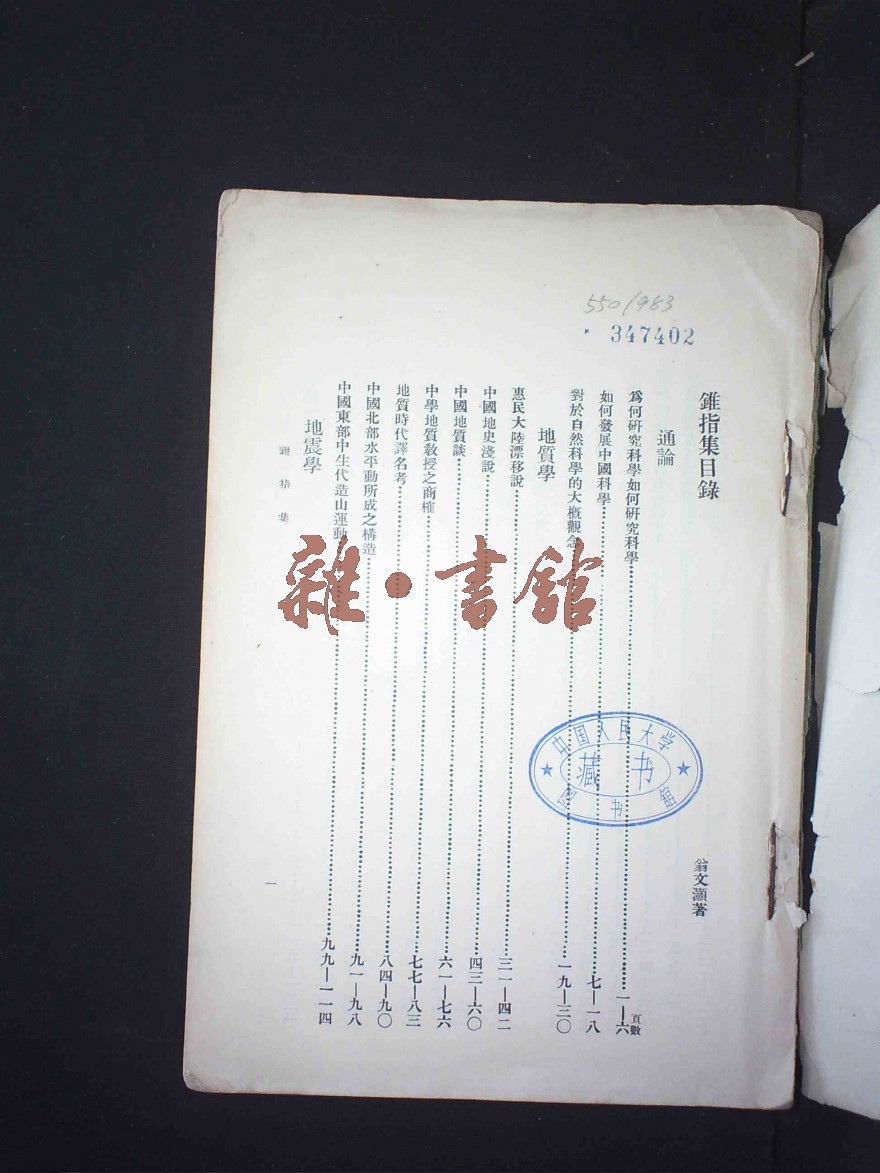 550/983
347402
錐指集目錄
翁文灝著
通論
頁數
爲何研究科學如何研究科學 一—六
如何發展中國科學 七—一八
對於自然科學的大概觀念 一九—三〇
地質學
惠氏大陸漂移說 三一—四二
中國地史淺說 四三—六〇
中國地質談 六一—七六
中學地質敎授之商榷 七七—八三
地質時代譯名考 八四—九〇
中國北部水平動所成之構造 九一—九八
中國東部中生代造山運動 九九—一一四
地震學
錐指集
一
雜·書館
中国人民大学
藏书
图书館